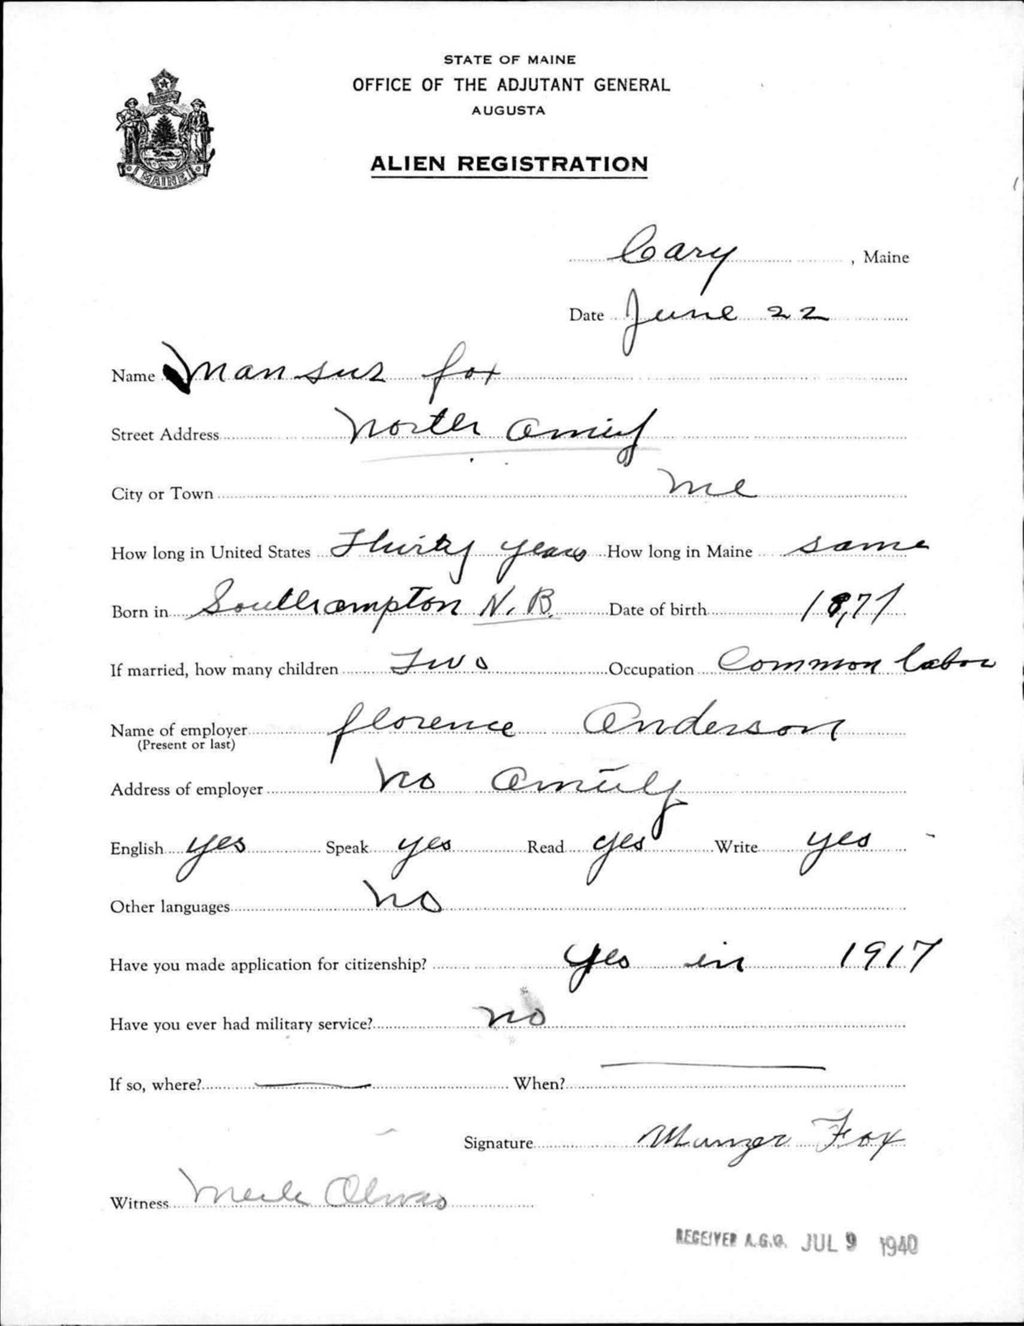 STATE OF MAINE
OFFICE OF THE ADJUTANT GENERAL
AUGUSTA
ALIEN REGISTRATION
MAINE
Cary, Maine
Date June 22
Name Mansur fox
Street Address North Amity
City or Town Me
How long in United States Thirty years How long in Maine same
Born in Southampton N.B. Date of birth 1877
If married, how many children Two Occupation Common labor
Name of employer florence Anderson
(Present or last)
Address of employer No Amity
English yes Speak yes Read yes Write yes
Other languages no
Have you made application for citizenship? yes in 1917
Have you ever had military service? no
If so, where? When?
Signature Munzer Fox
Witness Merle
RECEIVED A.G.O. JUL 9 1940